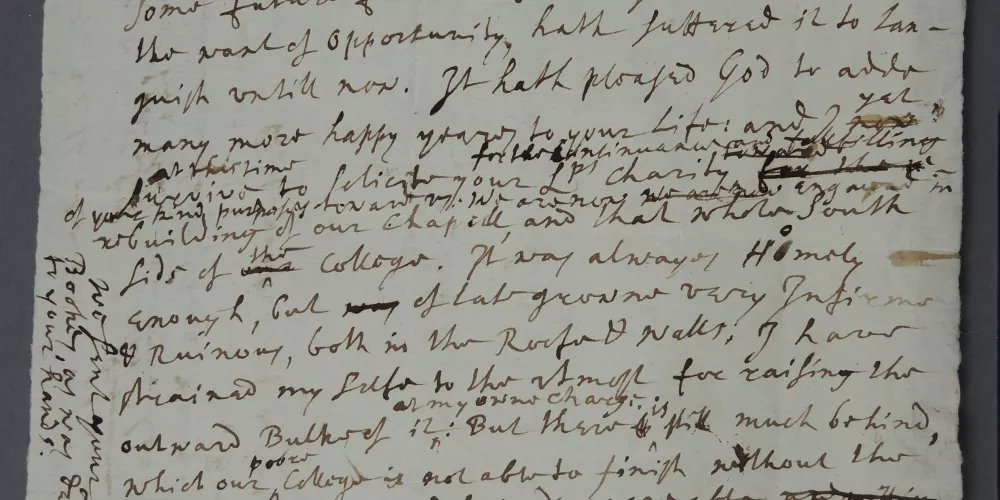 some future
the want of Opportunity, hath suffered it to lan-
guish untill now. It hath pleased God to adde
many more happy yeares to your Life: and I yet
survive at this time to felicite your Lps Charity for the continuance and fulfilling
of your kind purposes towards us. We are now we are now engaged in
rebuilding of our Chapell, and that whole South
side of the College. It was alwayes Homely
enough, but was of late growne very Infirme
& Ruinous, both in the Roofe & walls; I have
strained my selfe to the utmost for raising the
at my owne charge.
outward Bulke of it: But there is still much behind,
which our poore College is not able to finish without the
to your hands.